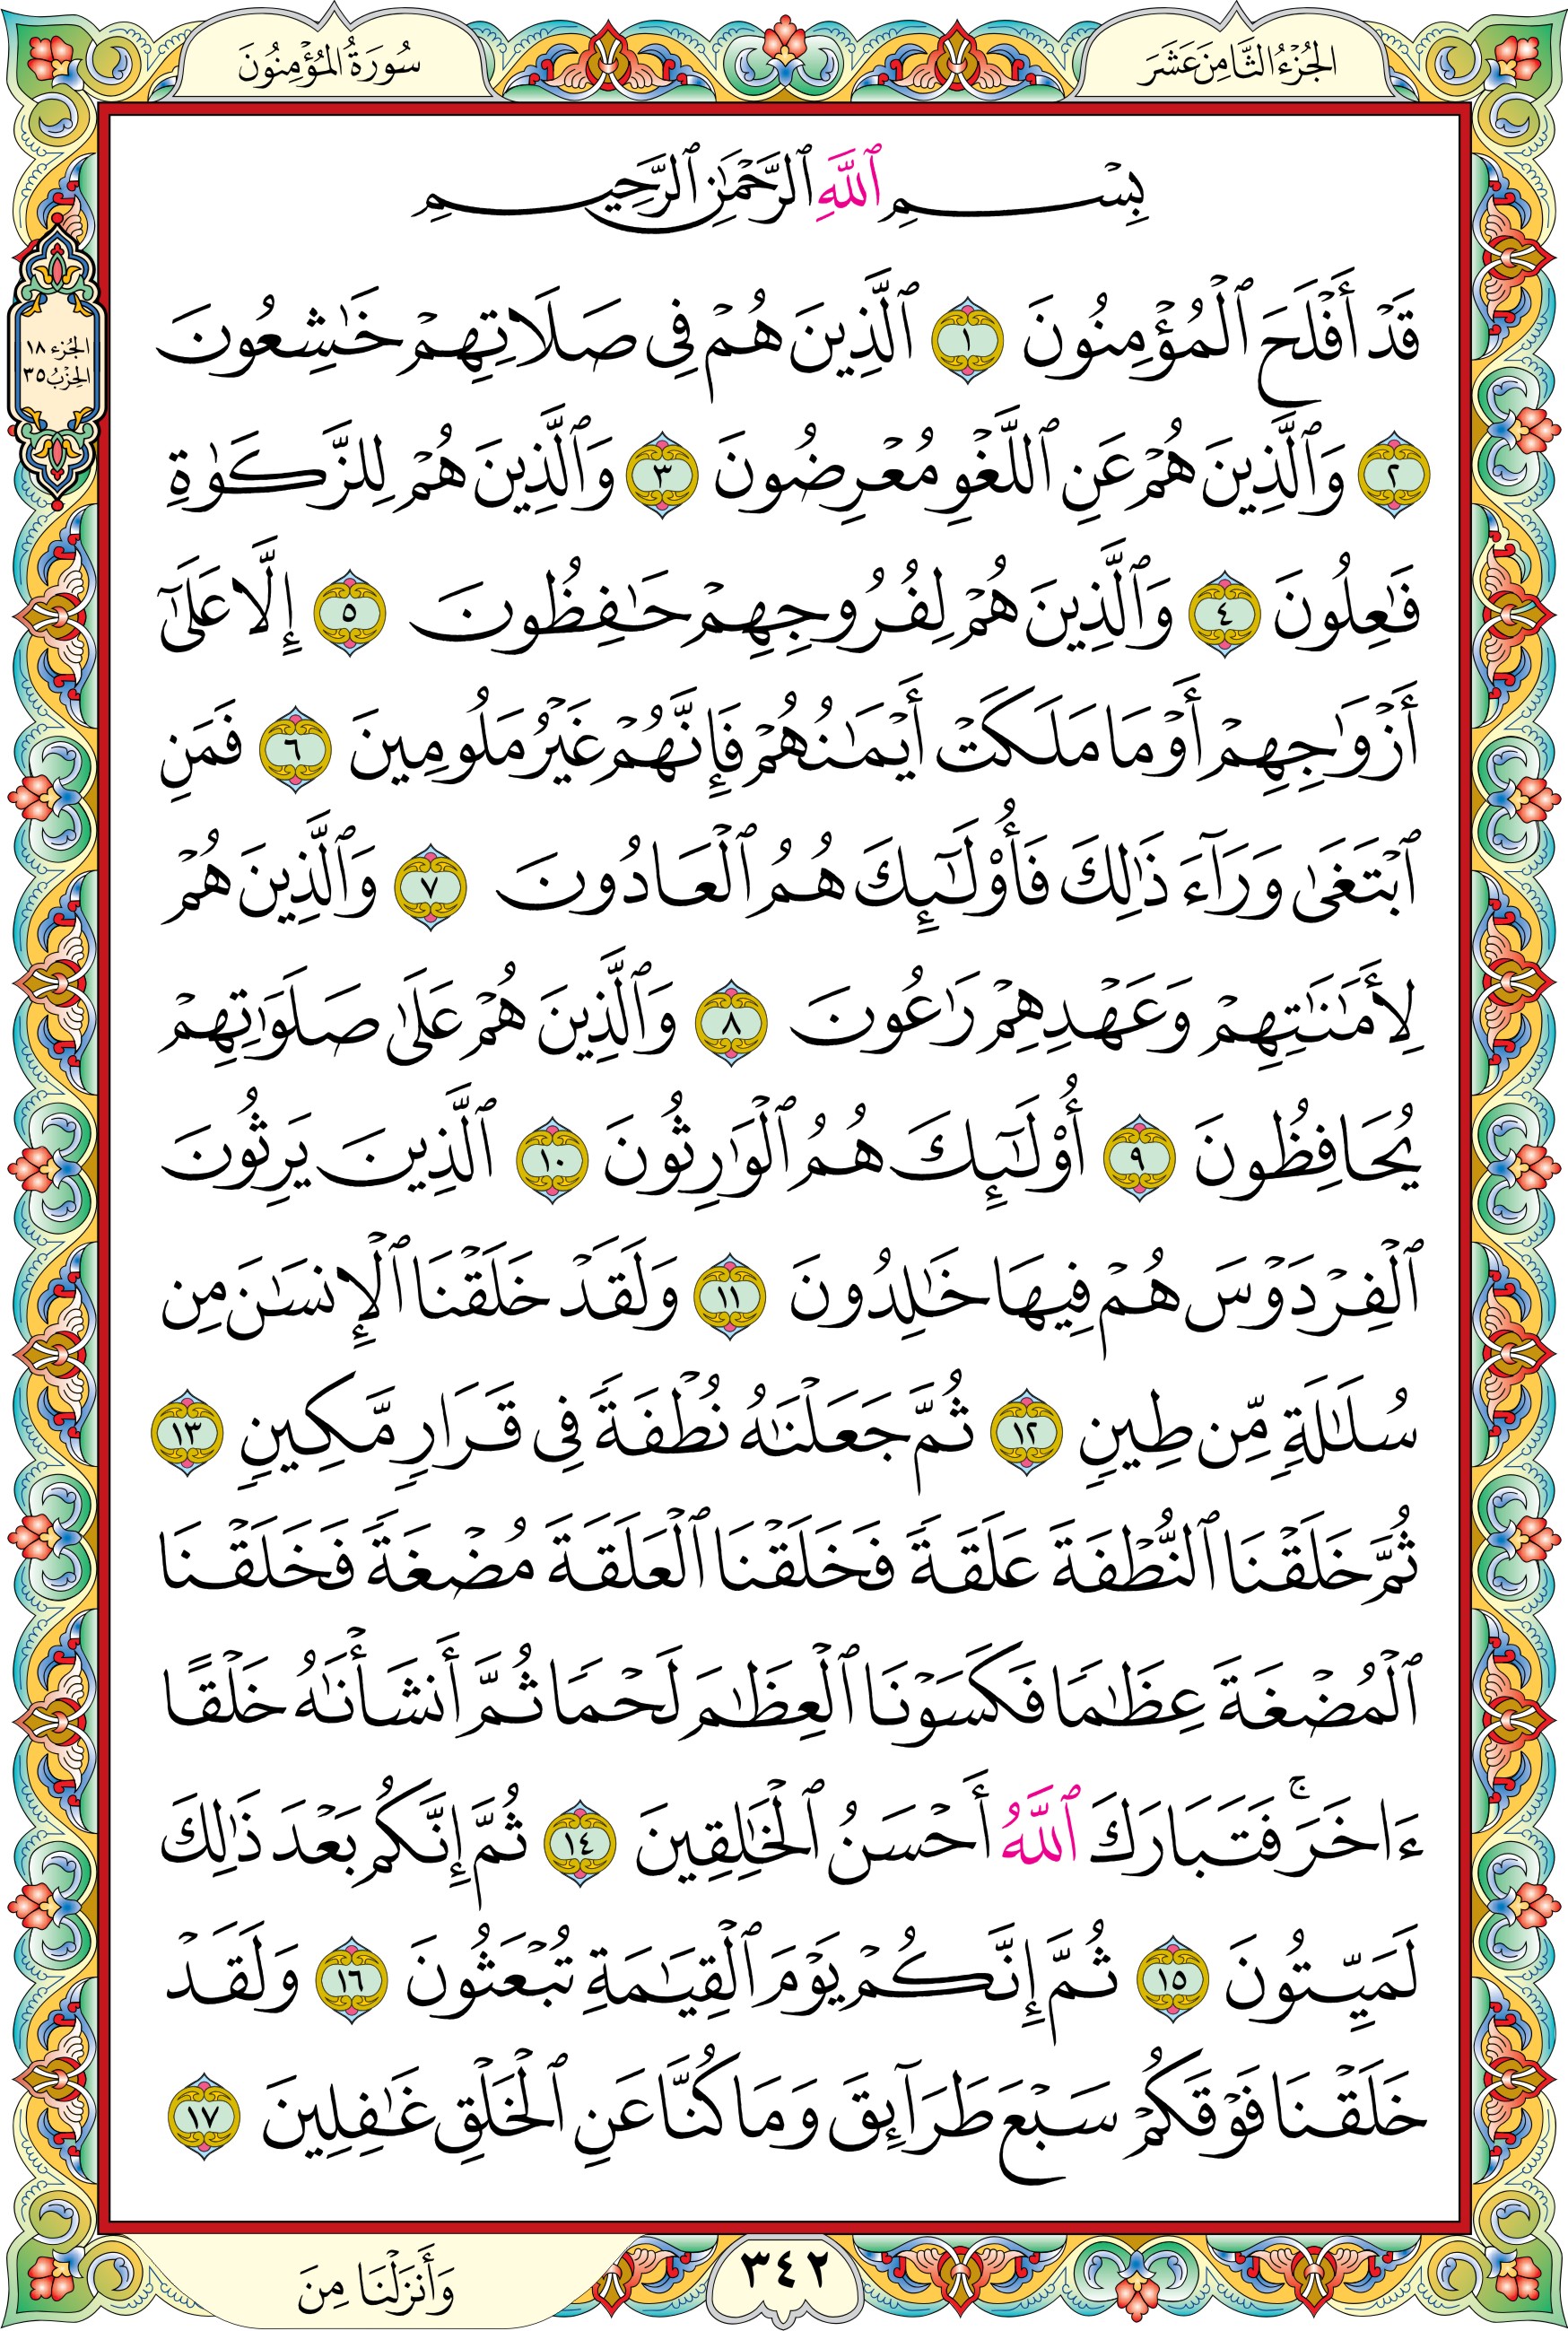 الجُزْءُ الثَّامِنَ عَشَرَ
سُورَةُ المُؤْمِنُونَ
الجُزء ١٨
الحِزْبُ ٣٥
بِسْمِ ٱللَّهِ ٱلرَّحْمَٰنِ ٱلرَّحِيمِ
قَدْ أَفْلَحَ ٱلْمُؤْمِنُونَ ١ ٱلَّذِينَ هُمْ فِى صَلَاتِهِمْ خَٰشِعُونَ
٢ وَٱلَّذِينَ هُمْ عَنِ ٱللَّغْوِ مُعْرِضُونَ ٣ وَٱلَّذِينَ هُمْ لِلزَّكَوٰةِ
فَٰعِلُونَ ٤ وَٱلَّذِينَ هُمْ لِفُرُوجِهِمْ حَٰفِظُونَ ٥ إِلَّا عَلَىٰٓ
أَزْوَٰجِهِمْ أَوْ مَا مَلَكَتْ أَيْمَٰنُهُمْ فَإِنَّهُمْ غَيْرُ مَلُومِينَ ٦ فَمَنِ
ٱبْتَغَىٰ وَرَآءَ ذَٰلِكَ فَأُو۟لَٰٓئِكَ هُمُ ٱلْعَادُونَ ٧ وَٱلَّذِينَ هُمْ
لِأَمَٰنَٰتِهِمْ وَعَهْدِهِمْ رَٰعُونَ ٨ وَٱلَّذِينَ هُمْ عَلَىٰ صَلَوَٰتِهِمْ
يُحَافِظُونَ ٩ أُو۟لَٰٓئِكَ هُمُ ٱلْوَٰرِثُونَ ١٠ ٱلَّذِينَ يَرِثُونَ
ٱلْفِرْدَوْسَ هُمْ فِيهَا خَٰلِدُونَ ١١ وَلَقَدْ خَلَقْنَا ٱلْإِنسَٰنَ مِن
سُلَٰلَةٍ مِّن طِينٍ ١٢ ثُمَّ جَعَلْنَٰهُ نُطْفَةً فِى قَرَارٍ مَّكِينٍ ١٣
ثُمَّ خَلَقْنَا ٱلنُّطْفَةَ عَلَقَةً فَخَلَقْنَا ٱلْعَلَقَةَ مُضْغَةً فَخَلَقْنَا
ٱلْمُضْغَةَ عِظَٰمًا فَكَسَوْنَا ٱلْعِظَٰمَ لَحْمًا ثُمَّ أَنشَأْنَٰهُ خَلْقًا
ءَاخَرَ ۚ فَتَبَارَكَ ٱللَّهُ أَحْسَنُ ٱلْخَٰلِقِينَ ١٤ ثُمَّ إِنَّكُم بَعْدَ ذَٰلِكَ
لَمَيِّتُونَ ١٥ ثُمَّ إِنَّكُمْ يَوْمَ ٱلْقِيَٰمَةِ تُبْعَثُونَ ١٦ وَلَقَدْ
خَلَقْنَا فَوْقَكُمْ سَبْعَ طَرَآئِقَ وَمَا كُنَّا عَنِ ٱلْخَلْقِ غَٰفِلِينَ ١٧
٣٤٢
وَأَنزَلْنَا مِنَ